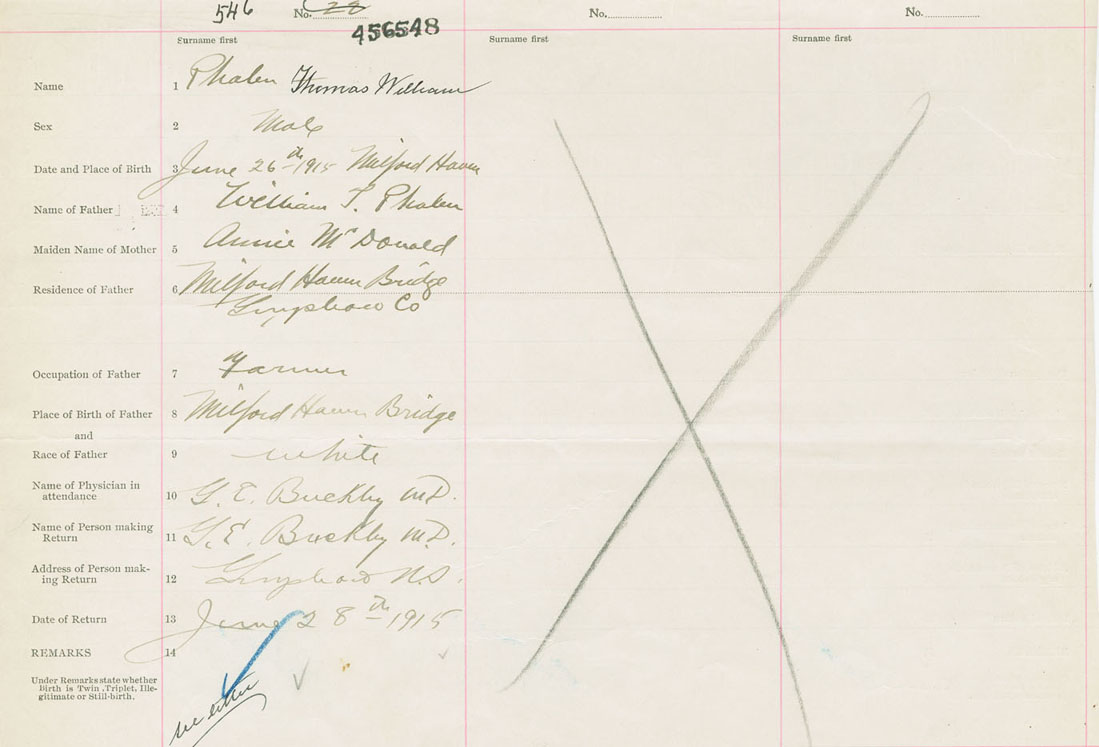 546 No. 28 No. No.
456548
Surname first Surname first Surname first
Name 1 Phalen Thomas William
Sex 2 Male
Date and Place of Birth 3 June 26th 1915 Milford Haven
Name of Father 4 William T. Phalen
Maiden Name of Mother 5 Annie McDonald
Residence of Father 6 Milford Haven Bridge
Guysboro Co
Occupation of Father 7 Farmer
Place of Birth of Father 8 Milford Haven Bridge
and
Race of Father 9 White
Name of Physician in
attendance 10 G. E. Buckley M.D.
Name of Person making
Return 11 G. E. Buckley M.D.
Address of Person mak-
ing Return 12 Guysboro N.S.
Date of Return 13 June 28th 1915
REMARKS 14
Under Remarks state whether
Birth is Twin, Triplet, Ille-
gitimate or Still-birth.